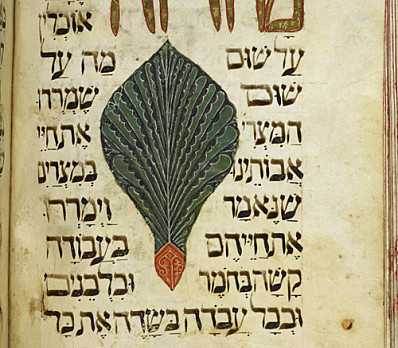 אוכלין
על שום מה על
שום שמררו
המצרי את חיי
אבותינו במצרים
שנאמר וימררו
את חייהם בעבודה
קשה בחמר ובלבנים
ובכל עבדה בשדה את כל